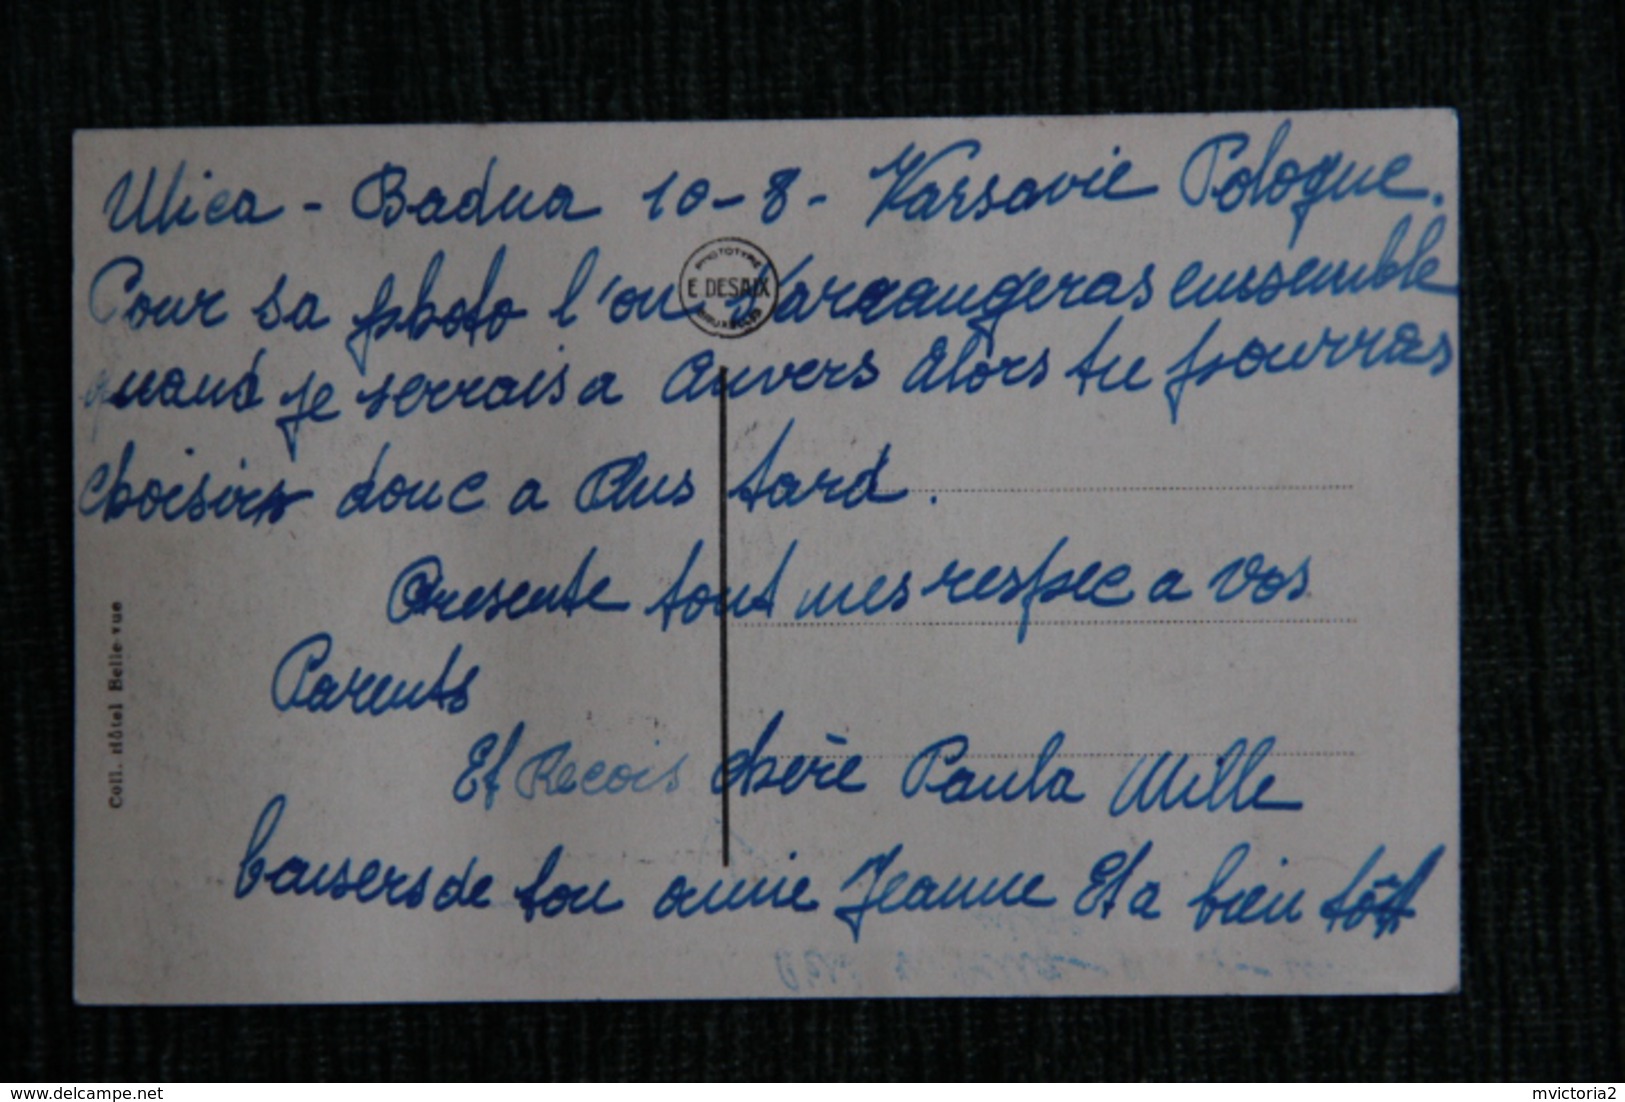 Ulica - Badua 10-8- Varsavie Pologne.
Pour sa photo l'on ensemble
quand je serrais a Anvers Alors tu pourras
choisirs donc a Plus tard.
Presente tout mes respec a vos
Parents
Et Recois chère Paula Mille
baisers de ton amie Jeanne Et a bien tôt
PHOTOTYPIE
E DESAIX
BRUXELLES
Coll. Hôtel Belle-vue
delcampe.net
mvictoria2